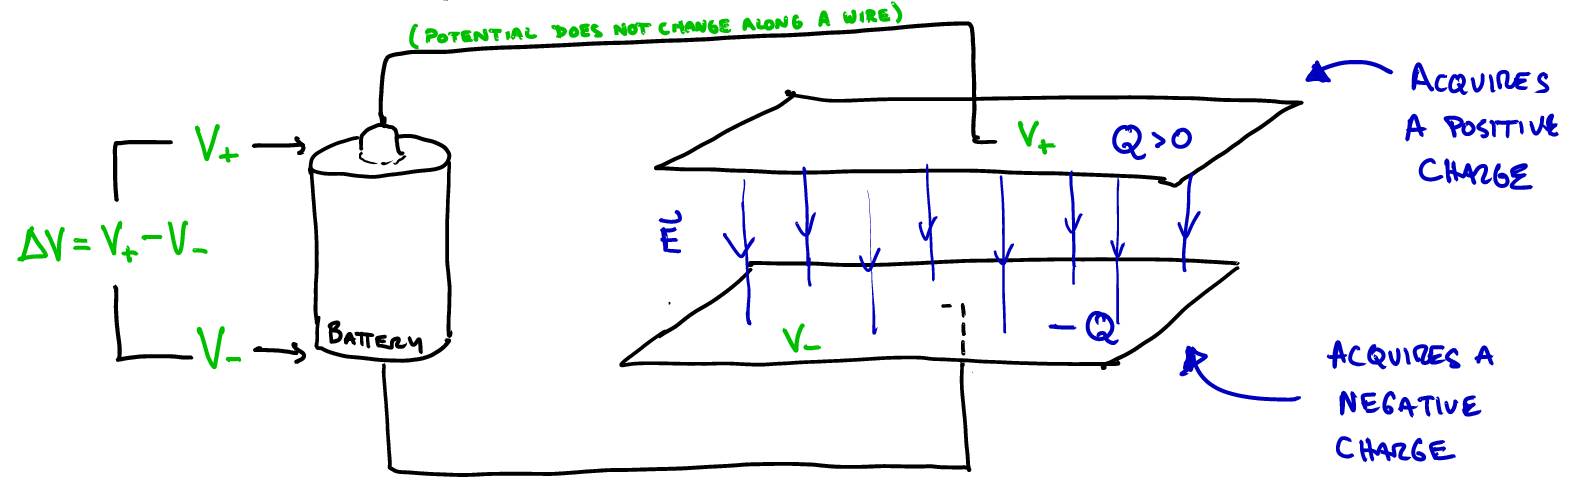 (POTENTIAL DOES NOT CHANGE ALONG A WIRE)
V₊
ΔV = V₊ − V₋
V₋
BATTERY
V₊ Q > 0
E⃗
V₋ − Q
ACQUIRES
A POSITIVE
CHARGE
ACQUIRES A
NEGATIVE
CHARGE